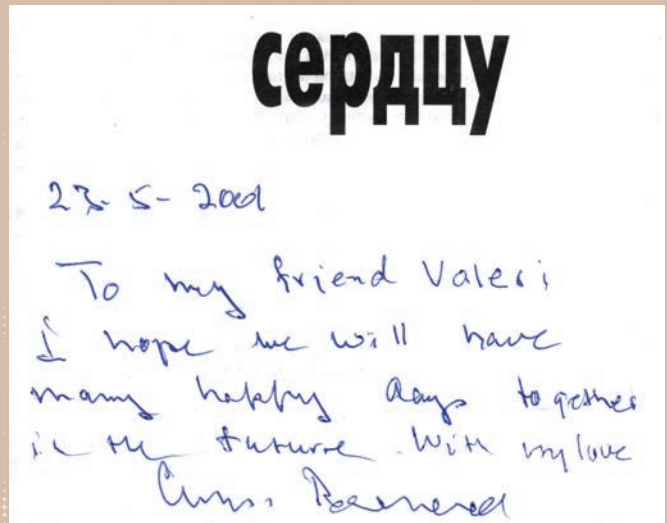 сердцу
23-5-2001
To my friend Valeri
I hope we will have
many happy days together
in the future. With my love